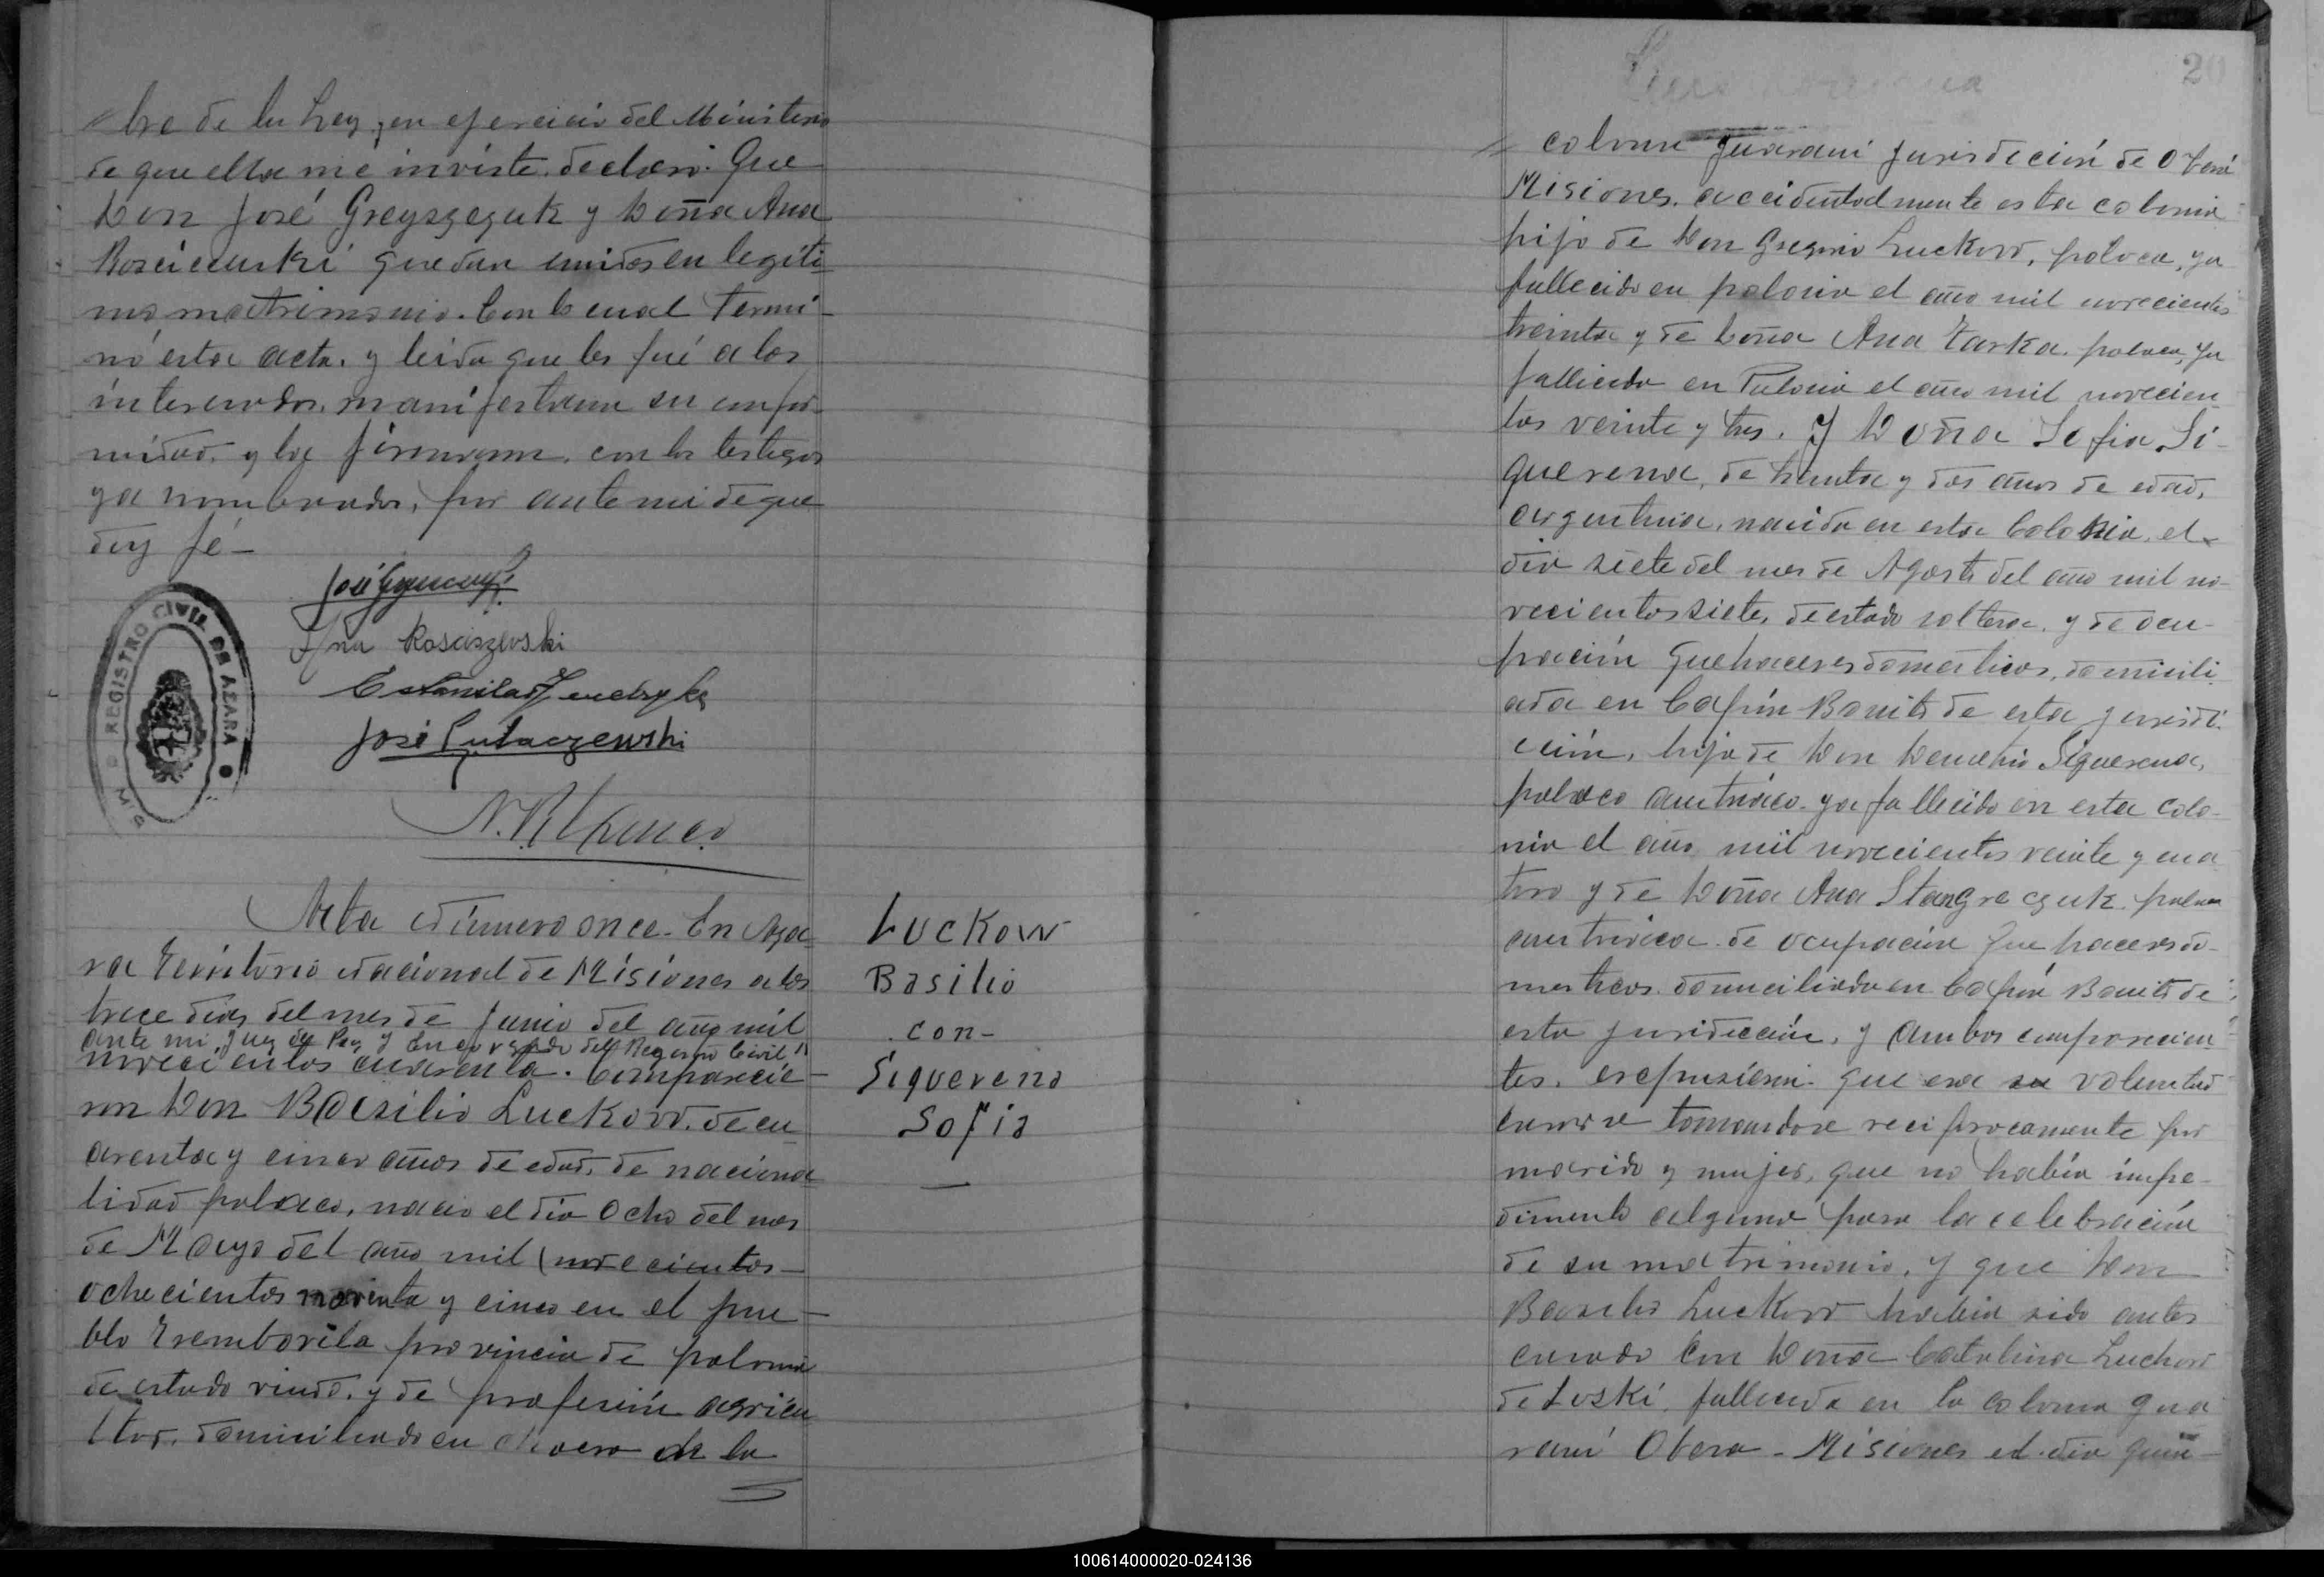 bre de la Ley, en ejercicio del Ministerio
de que ella me inviste. declaro: Que
Don José Greyszezuk y Doña Ana
Rosciceuski quedan unidos en legíti
mo matrimonio. Con lo cual termi-
nó esta acta. y leida que les fué a los
interesados, manifestaron su confor-
midad. y la firmaron. con los testigos
ya nombrados, por ante mi de que
doy fé-
José
Ana Rosciszevski
Estanislao Jendryka
José Lutaczewski
REGISTRO CIVIL DE AZARA
MIS
Acta Número once. En Aza
ra Territorio Nacional de Misiones a los
trece dias del mes de Junio del año mil
ante mi, Juez de Paz y Encargado del Registro Civil
novecientos cuarenta. Comparecie-
ron Don Basilio Luckow. de cu
arenta y cinco años de edad, de naciona
lidad polaco, nacio el dia Ocho del mes
de Mayo del año mil (novecientos-
ochecientos noventa y cinco en el pue-
blo Tremborila provincia de polonia
de estado viudo. y de profesión agricu
ltor. domiciliado en chacra de la
Luckow
Basilio
con-
Siguereno
Sofia
20
colonia Guarani Jurisdeción de Oberá
Misiones. accidentalmente esta colonia
hijo de Don Gregorio Luckow, polaca, ya
fallecido en polonia el año mil novecientos
treinta y de Doña Ana Tarka. polaca, ya
fallicida en Polonia el año mil novecien
tos veinte y tres. Y Doña Sofia Si-
querena, de treinta y dos años de edad,
argentina, nacida en esta Colonia, el
dia siete del mes de Agosto del año mil no-
vecientos siete, de estado soltera. y de ocu-
pación quehaceres domesticos, domicili
ada en Capón Bonito de esta jurisdi.
cción, hija de Don Demetrio Siguerena,
polaco austriaco. ya fallecido en esta colo-
nia el año mil novecientos veinte y cua
tro y de Doña Ana Stangraczuk. polaca
austriaca. de ocupación quehaceres do-
mesticos. domiciliada en Capón Bonito de
esta jurisdicción, y ambos comparecien
tes. expusieron. que era su voluntad
casarse tomandose reciprocamente por
marido y mujer, que no había impe-
dimento alguno para la celebración
de su matrimonio. y que Don
Basilio Luckow habia sido antes
casado con Doña Catalina Luckow
de Loski. fallecida en la colonia Gua
rani Obera-Misiones el dia quin-
100614000020-024136